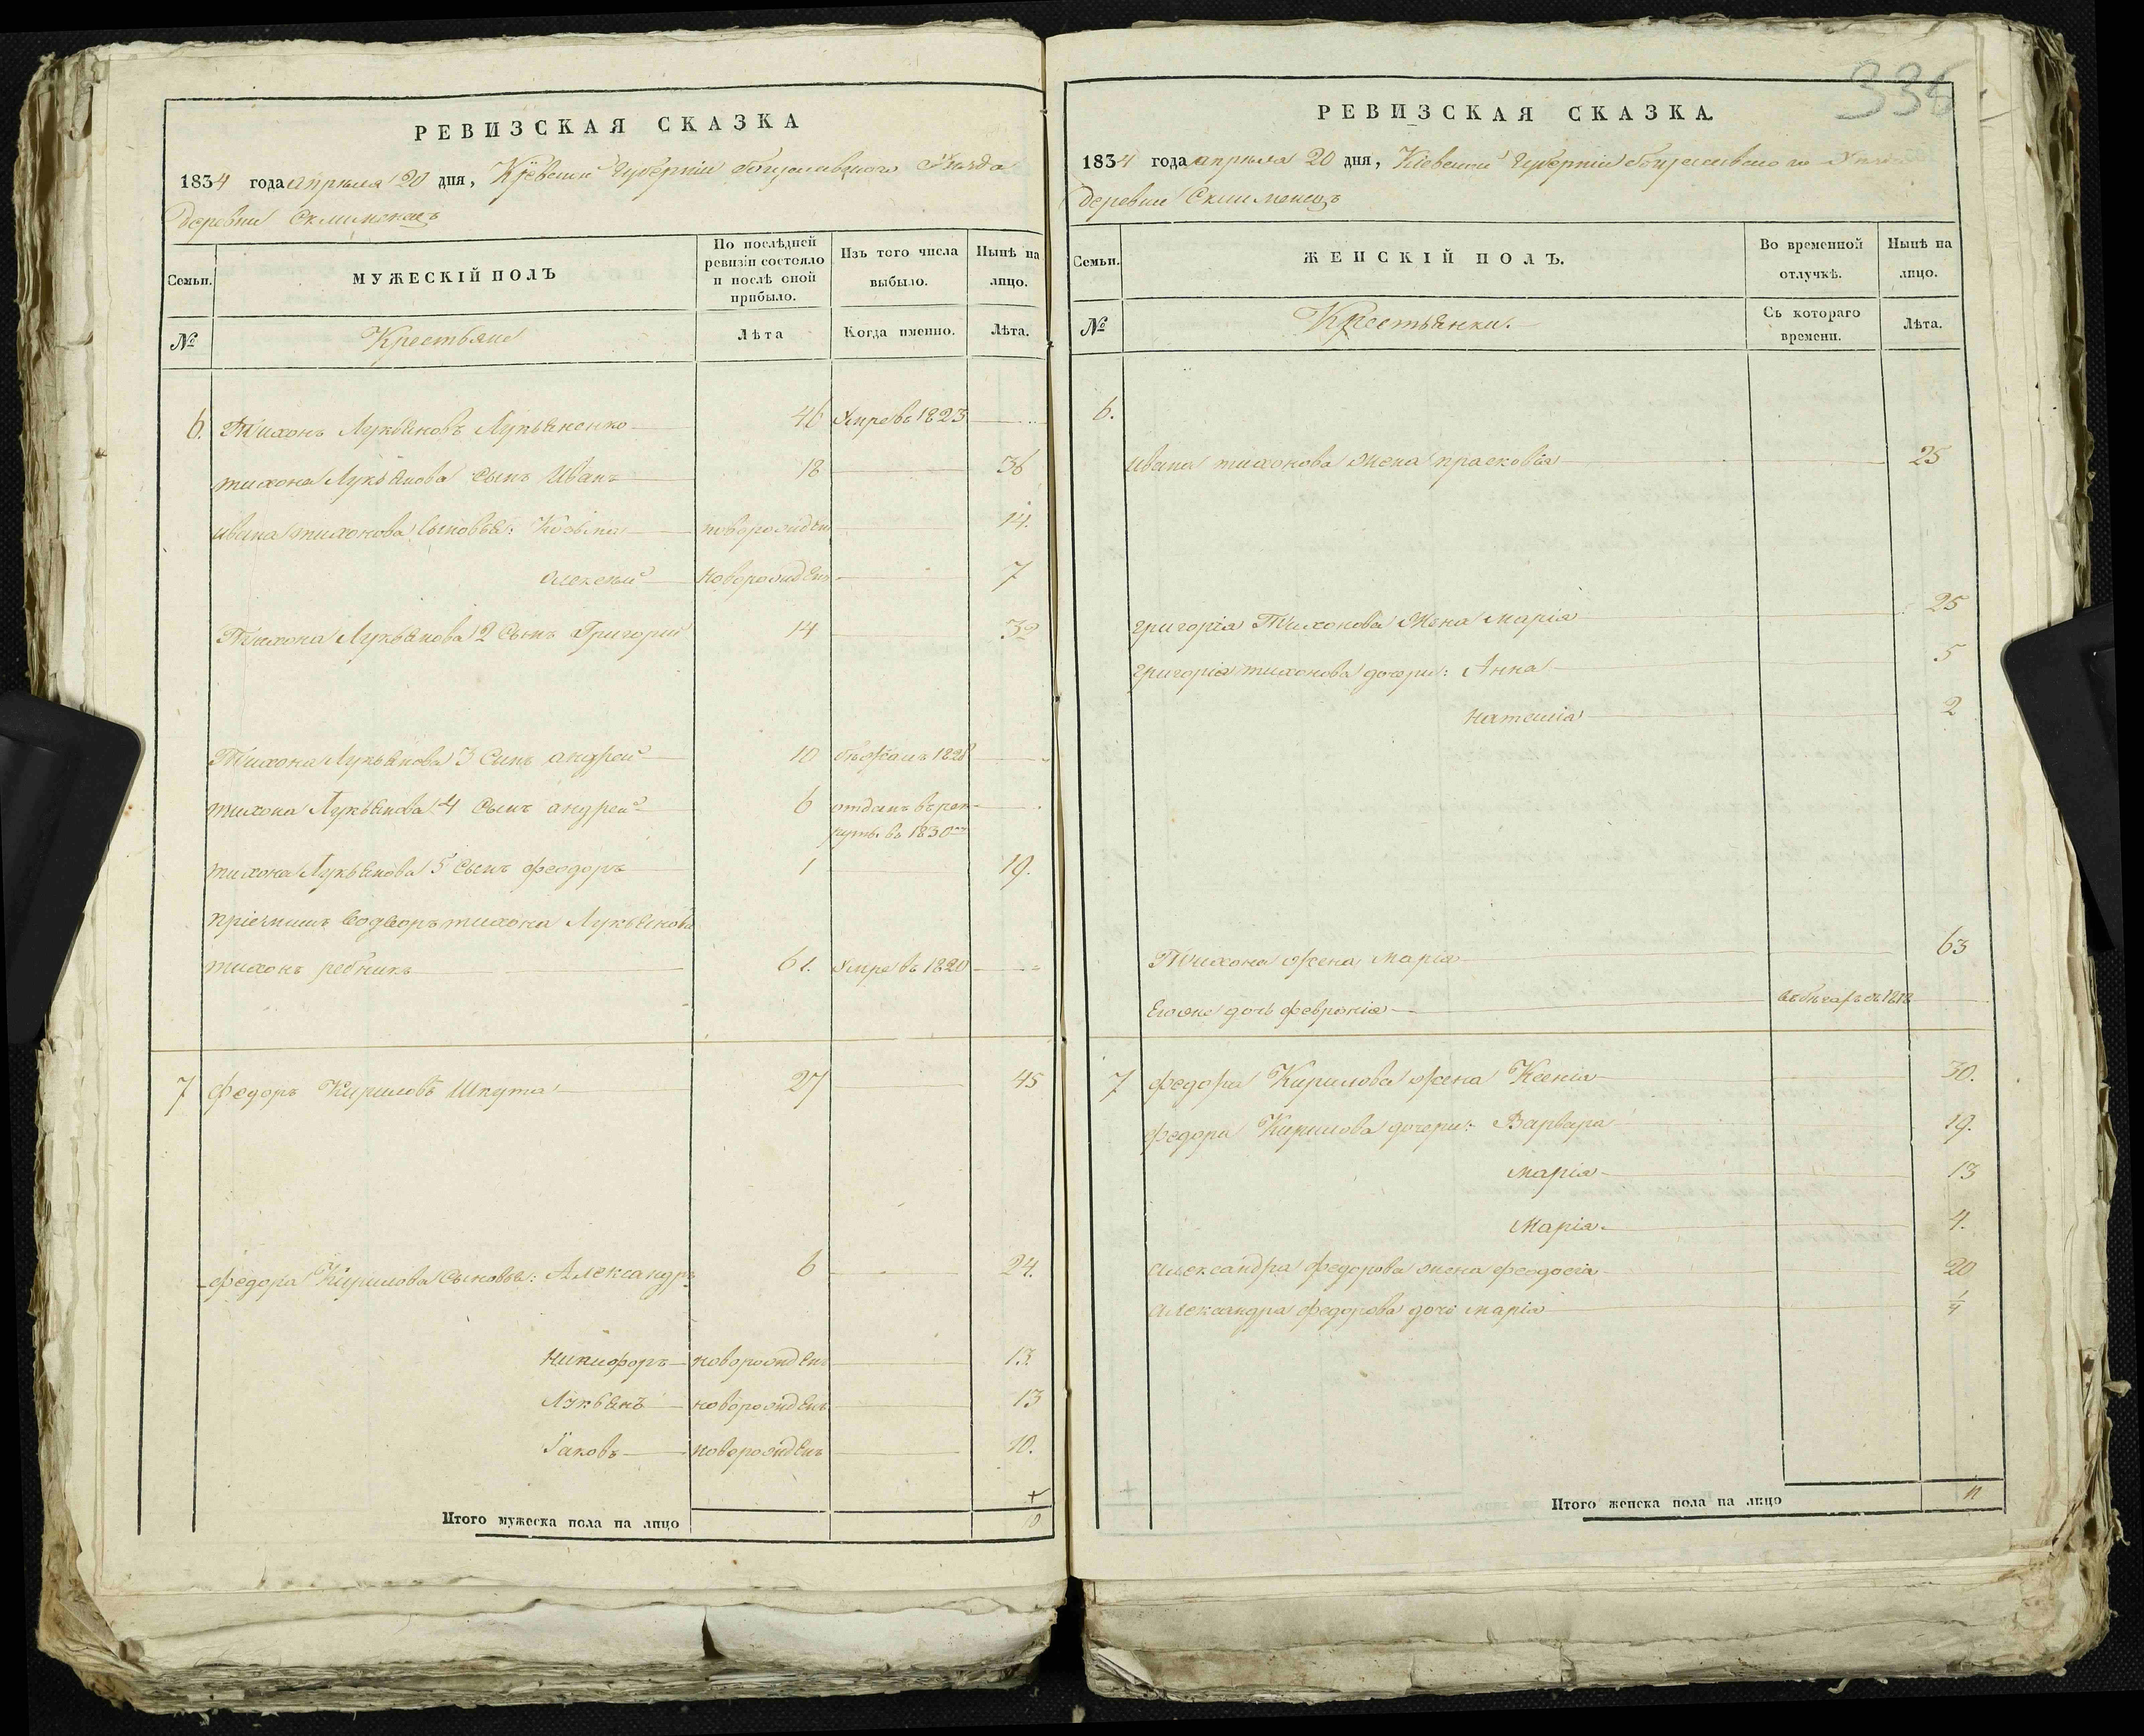 РЕВИЗСКАЯ СКАЗКА
1834 года апреля 20 дня, Кіевской Губерніи Богуславского Уезда
деревни Склименецъ
Семьи.
МУЖЕСКІЙ ПОЛЪ
По послѣдней ревизіи состояло и послѣ оной прибыло.
Изъ того числа выбыло.
Нынѣ на лицо.
№
Крестьяне
Лѣта
Когда именно.
Лѣта.
6. Тихонъ Лукьяновъ Лукьяненко 46 Умре въ 1823
тихона Лукьянова сынъ Иванъ 18 36
ивана тихонова сыновья: Козьма новорожден 14.
Олексей новорожден 7
Тихона Лукьянова 2 сынъ Григорий 14 32
Тихона Лукьянова 3 синъ андрей 10 бѣжалъ 1828
тихона Лукьянова 4 сынъ андрей 6 отданъ в рек-
руты въ 1830
тихона Лукьянова 5 сынъ феодоръ 1 19.
пріемышъ во дворъ тихона Лукьянова
тихонъ 61. Умре въ 1820
7 федоръ Кириловъ Шкута 27 45
федора Кирилова сыновья: Александръ 6 24.
Никифоръ новорожденъ 13.
Лукьянъ новорожденъ 13
Іаковъ новорожденъ 10.
Итого мужеска пола на лицо 10
336
РЕВИЗСКАЯ СКАЗКА.
1834 года апреля 20 дня, Кіевской Губерніи Богуславского Уезда
деревни Склименецъ
Семьи.
ЖЕНСКІЙ ПОЛЪ.
Во временной отлучкѣ.
Нынѣ на лицо.
№
Крестьянки.
Съ котораго времени.
Лѣта.
6.
ивана тихонова жена прасковія 25
григорія Тихонова жена марія 25
григорія тихонова дочери: Анна 5
наталія 2
Тихона жена марія 63
его же дочь февронія
7 федора Кирилова жена Ксенія 30.
федора Кирилова дочери: Варвара 19.
марія 13
Марія. 4.
александра федорова жена феодосія 20
александра федорова дочь марія 1/4
Итого женска пола на лицо 11